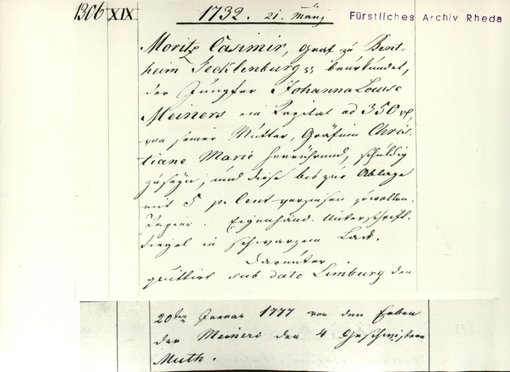 1306 XIX 1732. 21. März Fürstliches Archiv Rheda
Moritz Casimir, Graf zu Bent-
heim Tecklenburg beurkundet,
der Jungfer Johanna Louise
Meiners ein Capital ad 350
von seiner Mutter, Gräfin Chris-
tiane Marie herrührend, schuldig
zu seyn, und diese bis zur Ablage
mit 5 p. Cent verzinsen zu wollen.
Papier. Eigenhänd. Unterschrift.
Siegel in schwarzem Lack.
Darunter
quittirt sub dato Limburg den
20ten Januar 1777 von den Erben
der Meiners den 4 Geschwistern
Muth.